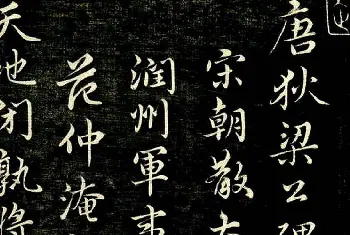 唐狄梁公碑
宋朝散大
潤州軍事
范仲淹
天地闭孰將